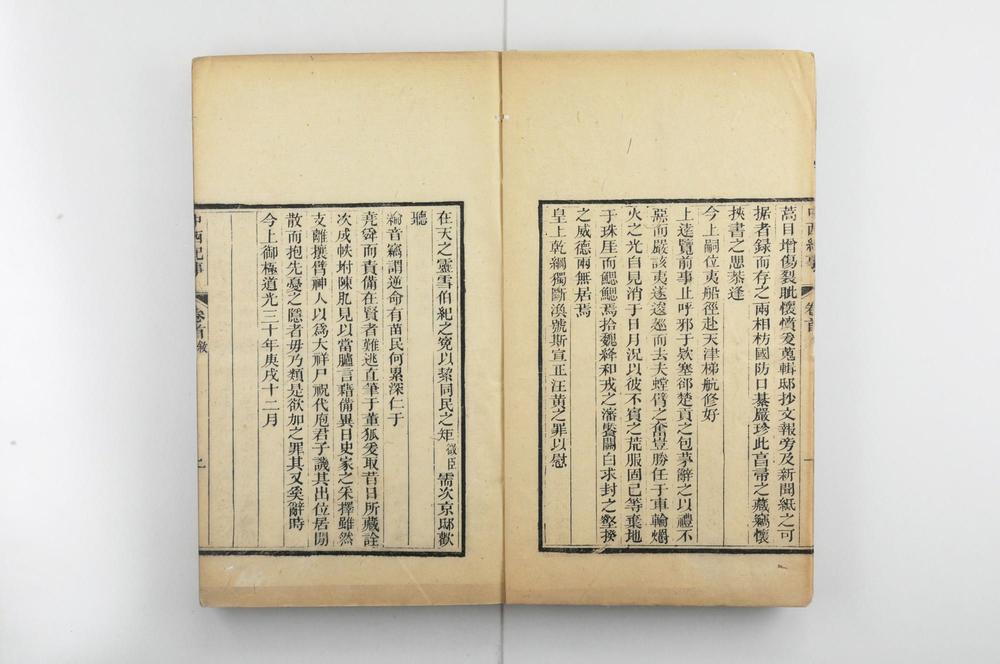 中西紀事 卷首
蒿目增傷裂眦懷憤爰蒐輯邸抄文報旁及新聞紙之可
据者録而存之兩相枋國防口綦嚴珍此享帚之藏竊懷
挾書之思恭逢
今上嗣位夷船徑赴天津梯航修好
上遠覽前事止呼邪于欵塞郤楚貢之包茅辭之以禮不
惡而嚴該夷遂逡廵而去夫螳臂之奮豈勝任于車輪爝
火之光自見消于日月況以彼不賓之荒服固已等棄地
于珠厓而鰓鰓焉拾魏絳和戎之瀋襲關白求封之壑揆
之威德兩無居焉
皇上乾綱獨斷渙號斯宣正汪黃之罪以慰
在天之靈雪伯紀之寃以絜同民之矩微臣需次京邸歡
聽
綸音竊謂逆命有苗民何累深仁于
堯舜而責備在賢者難逃直筆于董狐爰取昔日所藏詮
次成帙坿陳肊見以當臚言藉備異日史家之采擇雖然
支離攘臂神人以爲大祥尸祝代庖君子譏其出位居閒
散而抱先憂之隱者毋乃類是欲加之罪其又奚辭時
今上御極道光三十年庚戌十二月
中西紀事 卷首敘